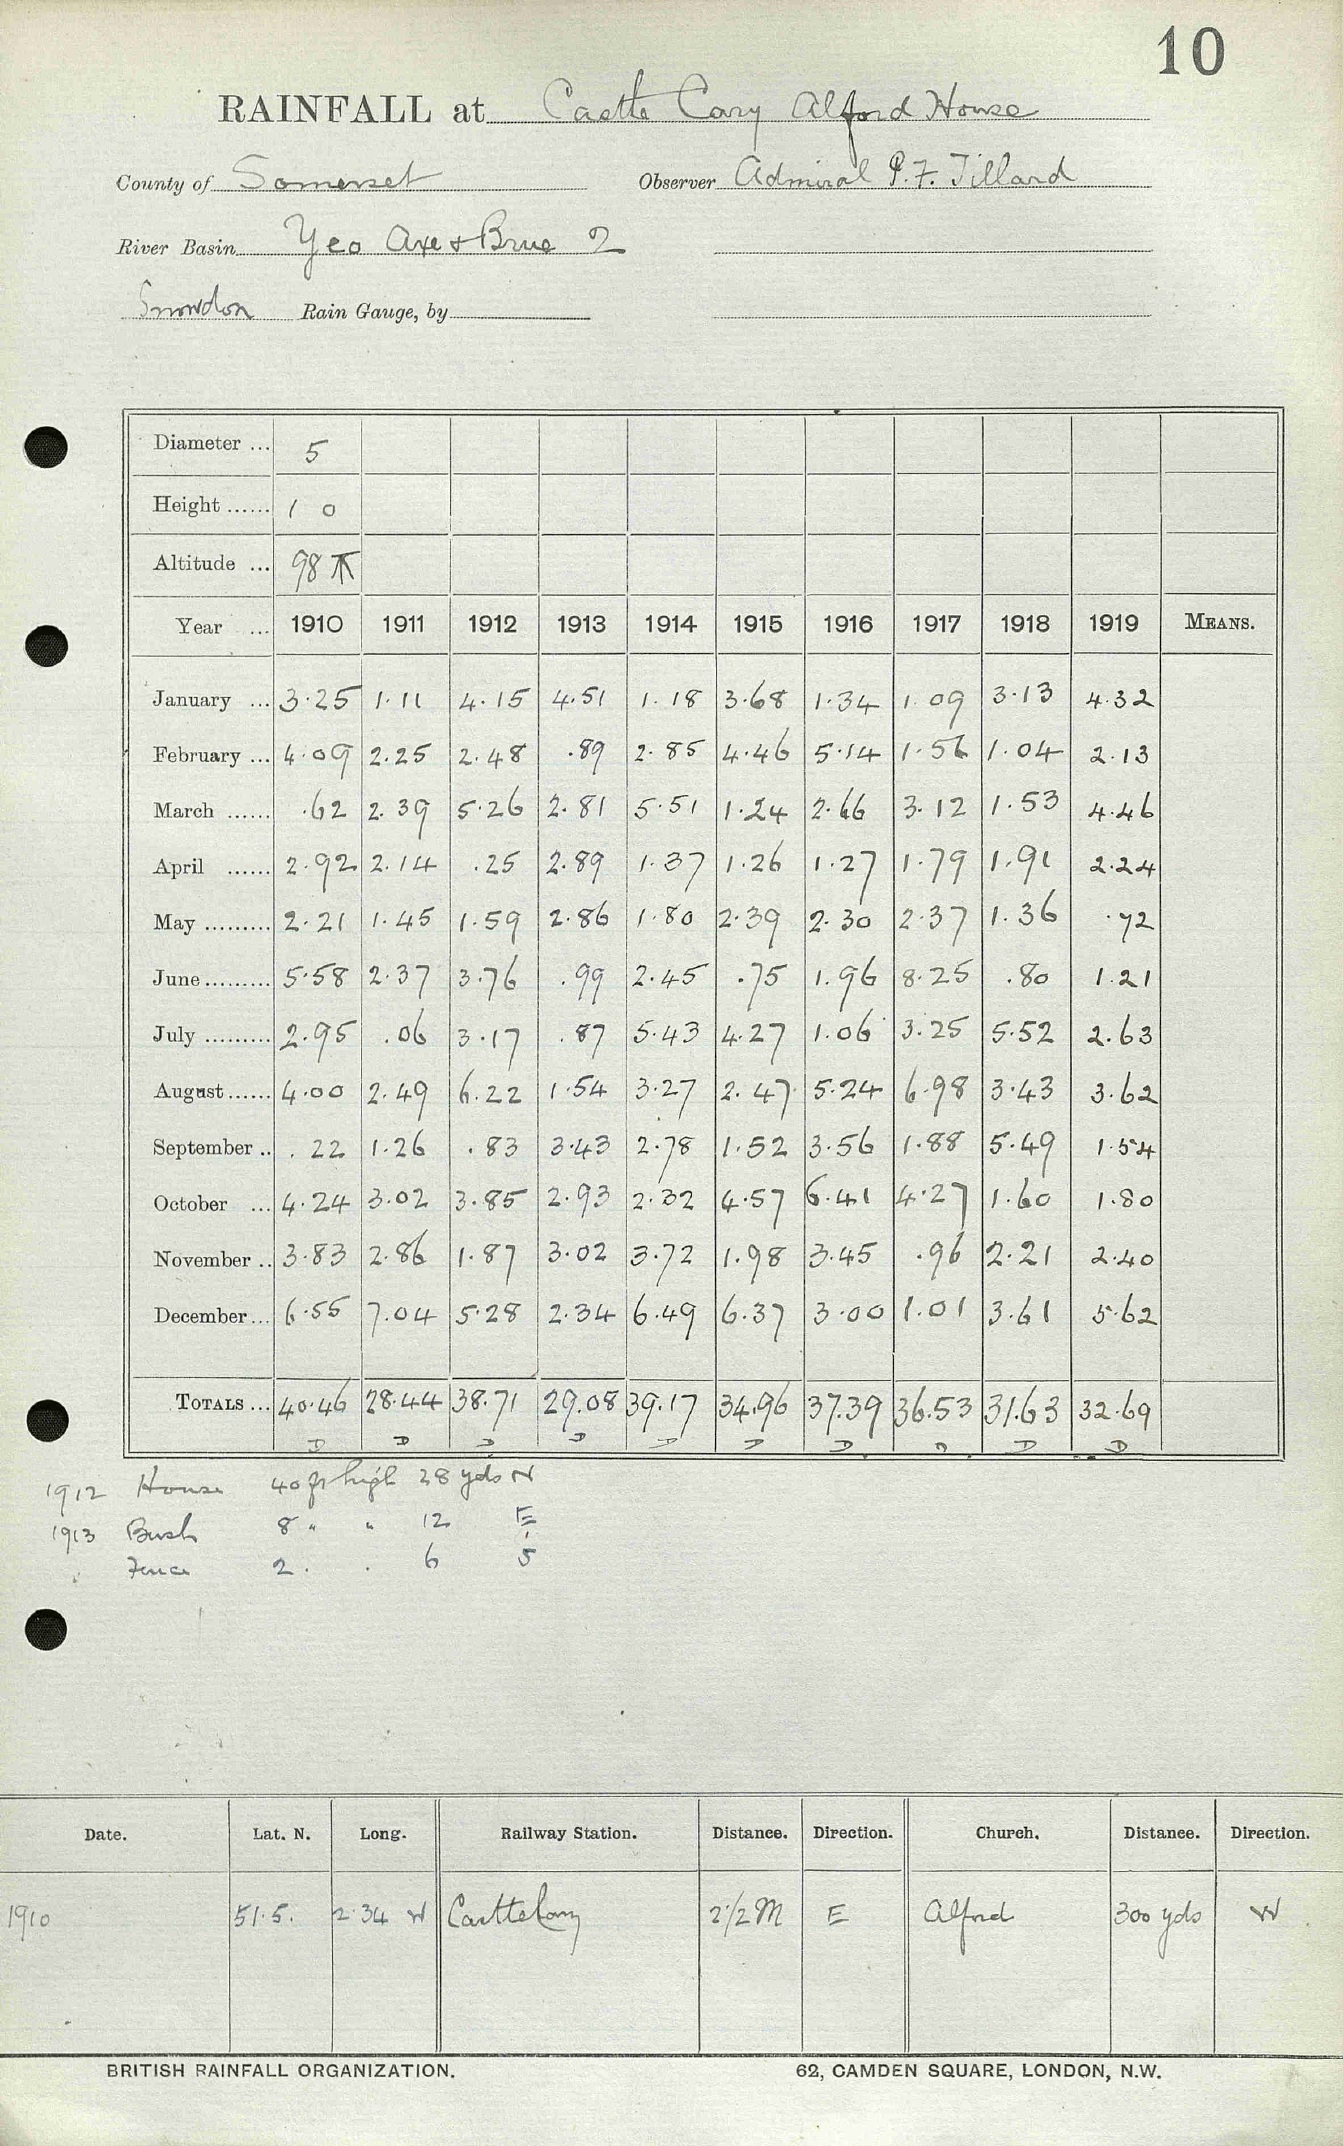 10
RAINFALL at Castle Cary Alford House
County of Somerset Observer Admiral P. F. Tillard
River Basin Yeo Axe & Brue 2
Snowdon Rain Gauge, by
Diameter ... 5
Height ...... 1 0
Altitude ... 98
Year ... 1910 1911 1912 1913 1914 1915 1916 1917 1918 1919 MEANS.
January ... 3.25 1.11 4.15 4.51 1.18 3.68 1.34 1.09 3.13 4.32
February ... 4.09 2.25 2.48 .89 2.85 4.46 5.14 1.56 1.04 2.13
March ...... .62 2.39 5.26 2.81 5.51 1.24 2.66 3.12 1.53 4.46
April ...... 2.92 2.14 .25 2.89 1.37 1.26 1.27 1.79 1.91 2.24
May ......... 2.21 1.45 1.59 2.86 1.80 2.39 2.30 2.37 1.36 .72
June ......... 5.58 2.37 3.76 .99 2.45 .75 1.96 8.25 .80 1.21
July ......... 2.95 .06 3.17 .87 5.43 4.27 1.06 3.25 5.52 2.63
August ...... 4.00 2.49 6.22 1.54 3.27 2.47 5.24 6.98 3.43 3.62
September .. .22 1.26 .83 3.43 2.78 1.52 3.56 1.88 5.49 1.54
October ... 4.24 3.02 3.85 2.93 2.32 4.57 6.41 4.27 1.60 1.80
November .. 3.83 2.86 1.87 3.02 3.72 1.98 3.45 .96 2.21 2.40
December ... 6.55 7.04 5.28 2.34 6.49 6.37 3.00 1.01 3.61 5.62
TOTALS ... 40.46 28.44 38.71 29.08 39.17 34.96 37.39 36.53 31.63 32.69
D D D D D D D D D D
1912 House 40 ft high 28 yds N
1913 Bush 8 " " 12 E
" Fence 2 . . 6 S
Date. Lat. N. Long. Railway Station. Distance. Direction. Church. Distance. Direction.
1910 51.5. 2.34 W Castle Cary 2 1/2 M E Alford 300 yds W
BRITISH RAINFALL ORGANIZATION. 62, CAMDEN SQUARE, LONDON, N.W.